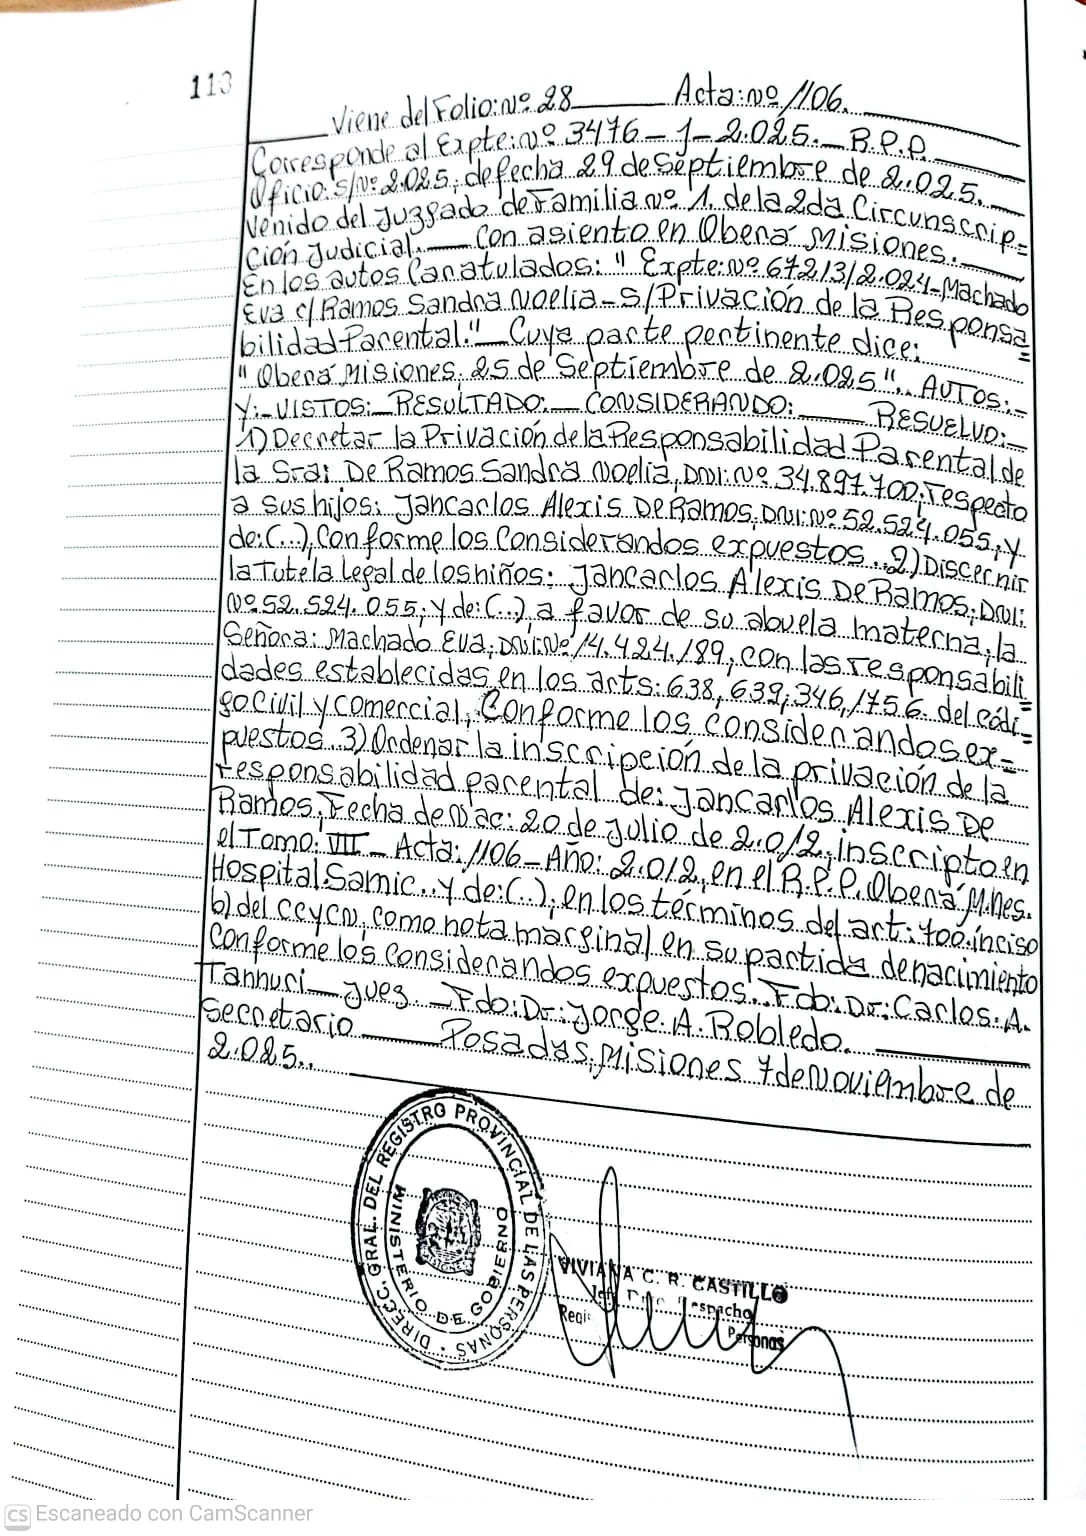 113
Viene del Folio: Nº 28 Acta: Nº 1106.
Corresponde al Expte: Nº 3476-J-2.025. R.P.P.
Oficio: S/Nº 2.025, de fecha 29 de Septiembre de 2.025.
Venido del Juzgado de Familia Nº 1. de la 2da Circunscrip=
ción Judicial. Con asiento en Oberá Misiones.
En los autos Caratulados: " Expte: Nº 67213/2.024-Machado
Eva c/ Ramos Sandra Noelia-S/Privación de la Responsa=
bilidad Parental." Cuya parte pertinente dice:
"Oberá Misiones, 25 de Septiembre de 2.025".. AUTOS:-
Y:- VISTOS:- RESULTADO:- CONSIDERANDO: RESUELVO:-
1) Decretar la Privación de la Responsabilidad Parental de
la Sra: De Ramos Sandra Noelia, DNI: Nº 34.897.700, respecto
a sus hijos: Jancarlos Alexis De Ramos, DNI: Nº 52.524.055, y
de: (...), Conforme los Considerandos expuestos.. 2) Discernir
la Tutela Legal de los niños: Jancarlos Alexis De Ramos, DNI:
Nº 52.524.055, y de: (...) a favor de su abuela materna, la
Señora: Machado Eva, DNI: Nº 14.424.189, con las responsabili=
dades establecidas en los arts: 638, 639, 346, 1756 del códi=
go Civil y Comercial, Conforme los considerandos ex=
puestos. 3) Ordenar la inscripción de la privación de la
responsabilidad parental de: Jancarlos Alexis De
Ramos, Fecha de Nac: 20 de Julio de 2.012, inscripto en
el Tomo: VII - Acta: 1106 - Año: 2.012, en el R.P.P. Oberá Mnes.
Hospital Samic.. y de: (...), en los términos del art: 700 inciso
b) del CCYCN, como nota marginal en su partida de nacimiento
conforme los considerandos expuestos".. Fdo: Dr: Carlos. A.
Tannuri - Juez - Fdo: Dr: Jorge. A. Robledo.
Secretario Posadas, Misiones 7 de Noviembre de
2.025..
DIRECC. GRAL. DEL REGISTRO PROVINCIAL DE LAS PERSONAS
MINISTERIO DE GOBIERNO
VIVIANA C. R. CASTILLO
Despacho
Personas
CS Escaneado con CamScanner